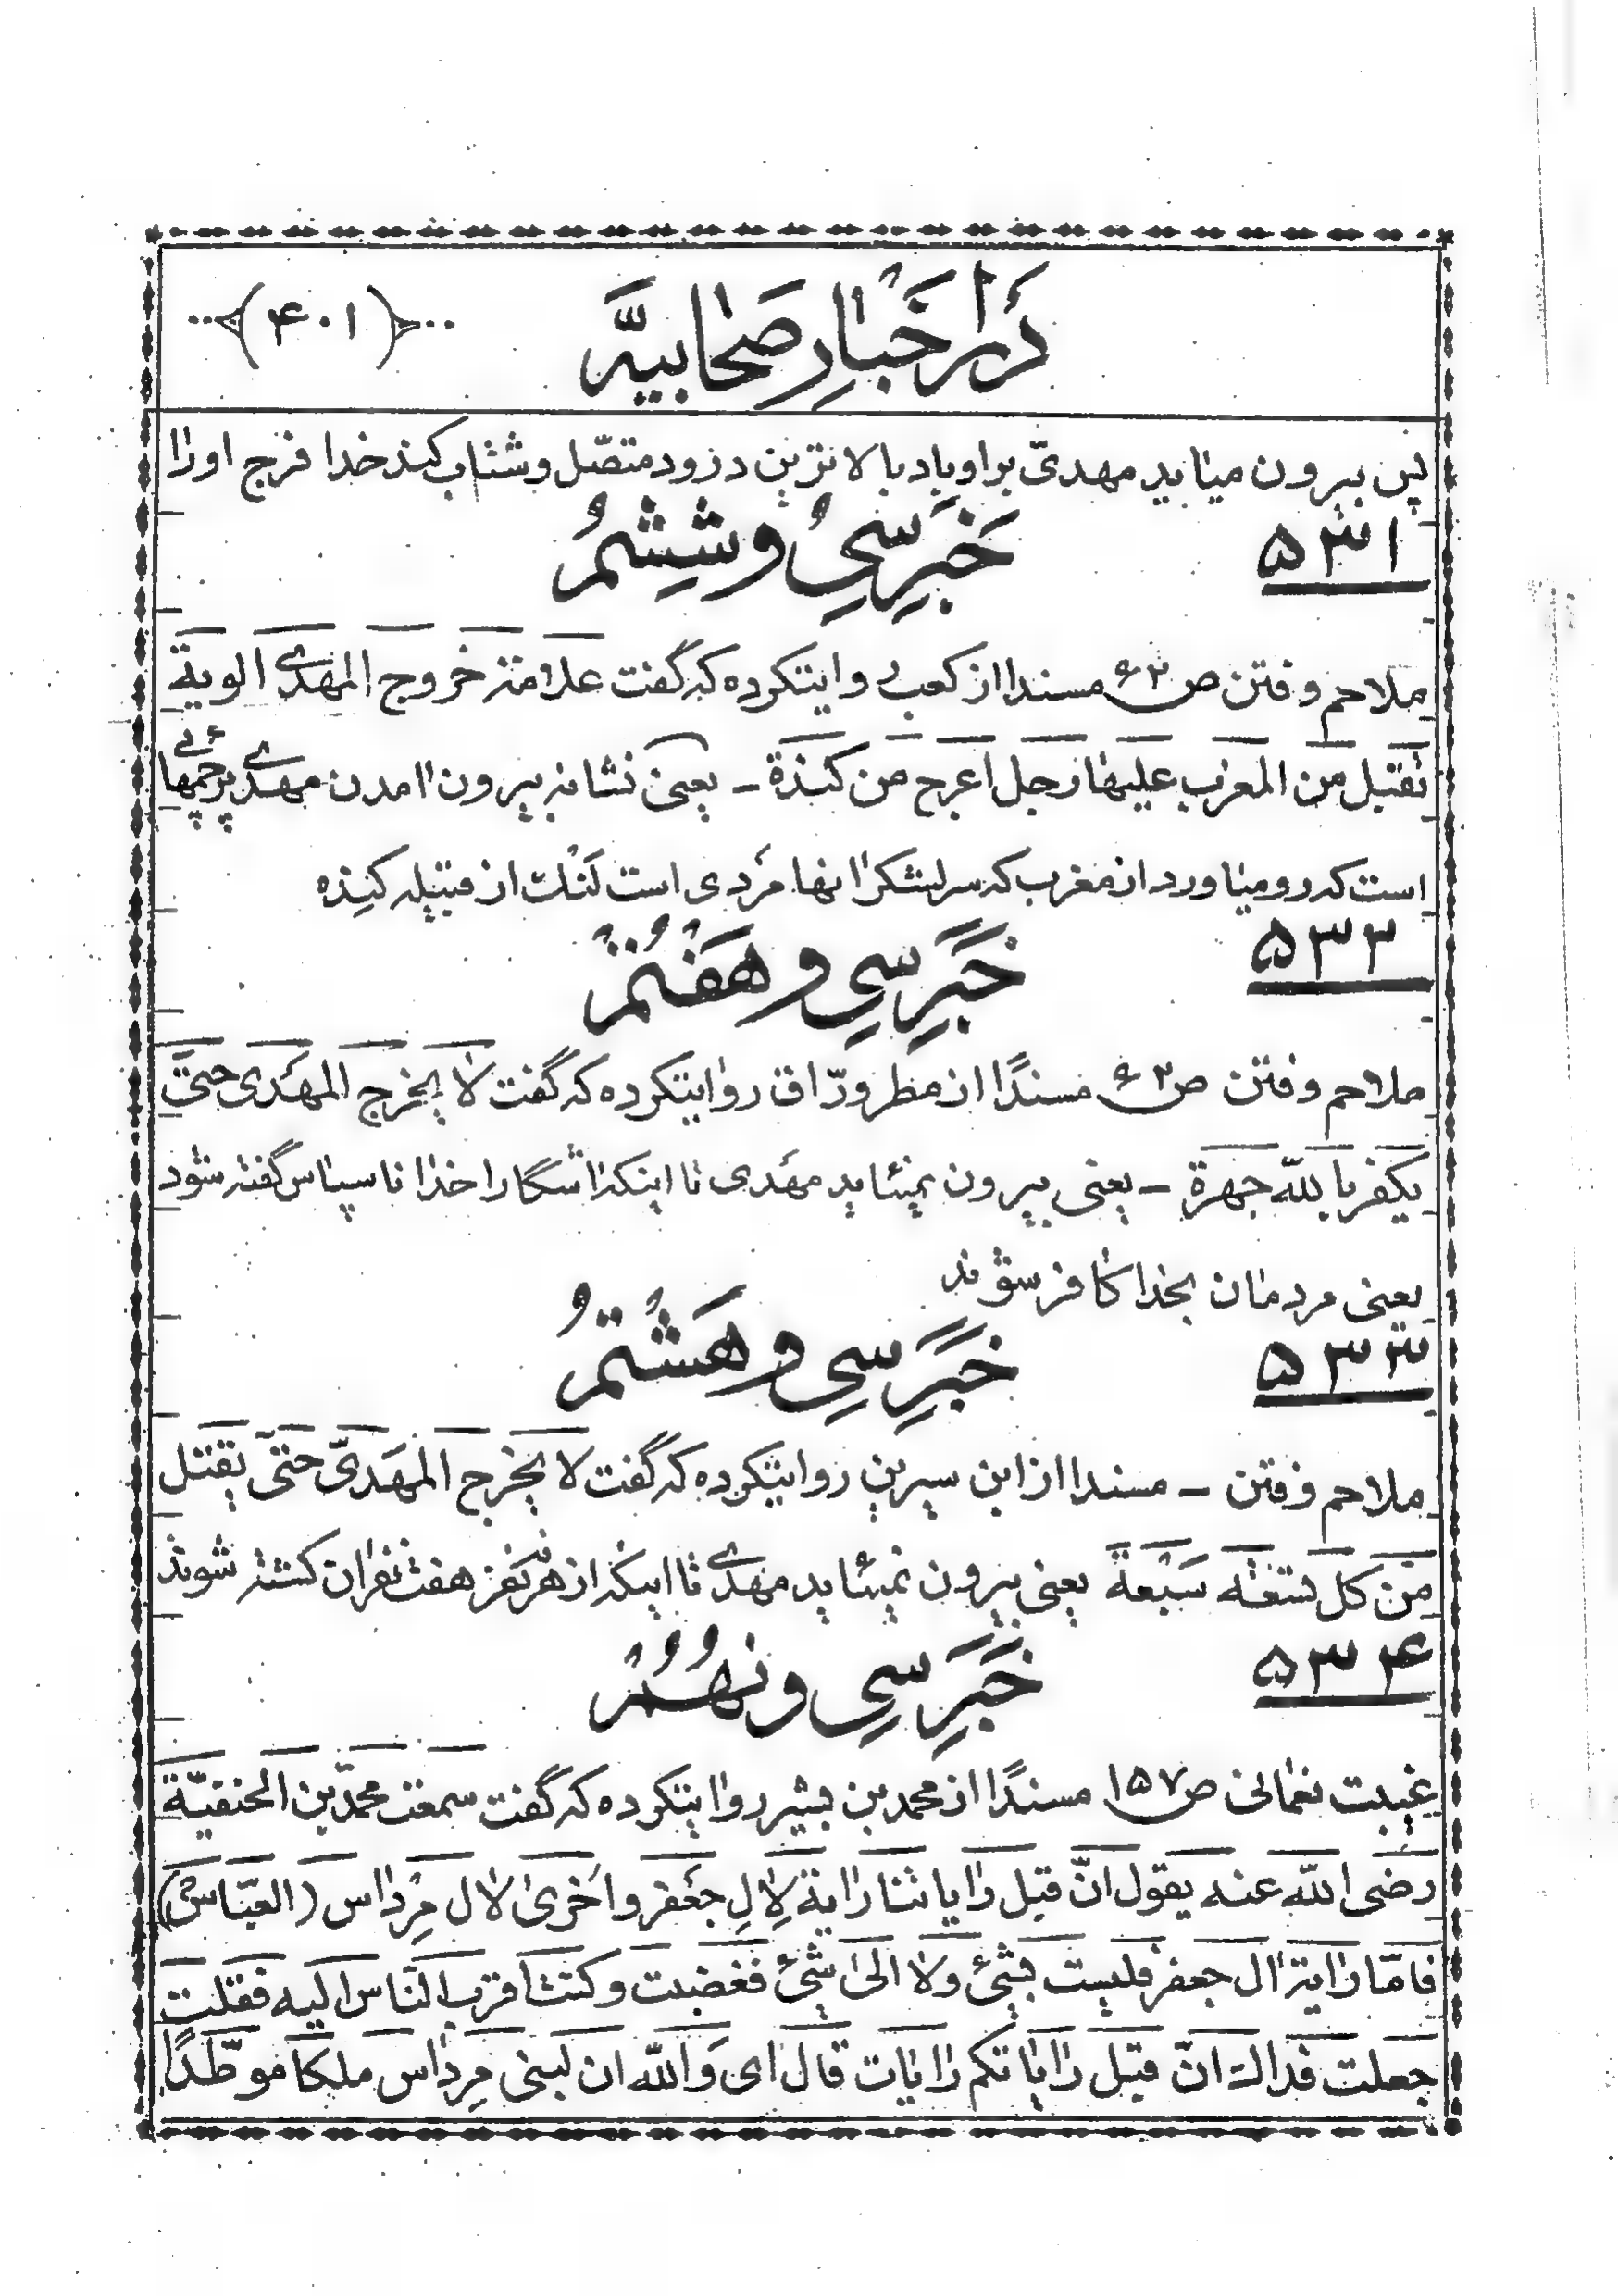 در اخبار صحابیه
(۴۰۱)
پس بیرون میاید مهدیّ براو باد بالاترین درود متصّل و شتاب کند خدا فرج او را
۵۳۱
خبر سی و ششم
ملاحم و فتن ص ۶۲ مسندا از کعب روایتکرده که گفت علامة خروج المهدی الویة
تقبل من المغرب علیها رجل اعرج من کندة - یعنی نشانه بیرون امدن مهدی پرچمهائی
است که رو میاورد از مغرب که سر لشکر انها مردی است لنک از قبیله کنده
۵۳۲
خبر سی و هفتم
ملاحم و فتن ص ۶۲ مسندًا از مطر ورّاق روایتکرده که گفت لا یخرج المهدی حتیّ
یکفر بالله جهرة - یعنی بیرون نمیاید مهدی تا اینکه اشگارا خدا ناسپاس گفته شود
یعنی مردمان بخدا کافر شوند
۵۳۳
خبر سی و هشتم
ملاحم و فتن - مسندا از ابن سیرین روایتکرده که گفت لا یخرج المهدیّ حتیّ یقتل
من کل تسعة سبعة یعنی بیرون نمیاید مهدی تا اینکه از هر نه نفر هفت نفر ان کشته شوند
۵۳۴
خبر سی و نهم
غیبت نعمانی ص ۱۵۷ مسندًا از محمد بن بشیر روایتکرده که گفت سمعت محمّد بن الحنفیّة
رضی الله عنه یقول انّ قبل رایاتنا رایة لال جعفر و اخری لال مرداس (العبّاس)
فامّا رایة ال جعفر فلیست بشیء ولا الی شیء فغضبت و کنت اقرب النّاس الیه فقلت
جعلت فداک انّ قبل رایاتکم رایات قال ای والله ان لبنی مرداس ملکا موطّدًا